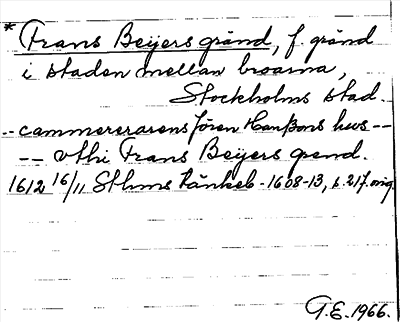 * Frans Beijers gränd, f. gränd
i staden mellan broarna,
Stockholms stad.
-- cammererarens Jören Hanßons hws --
-- vthi Frans Beijers grend.
1612 16/11 Sthms tänkeb. 1608-13, s. 217. orig.
G.E. 1966.